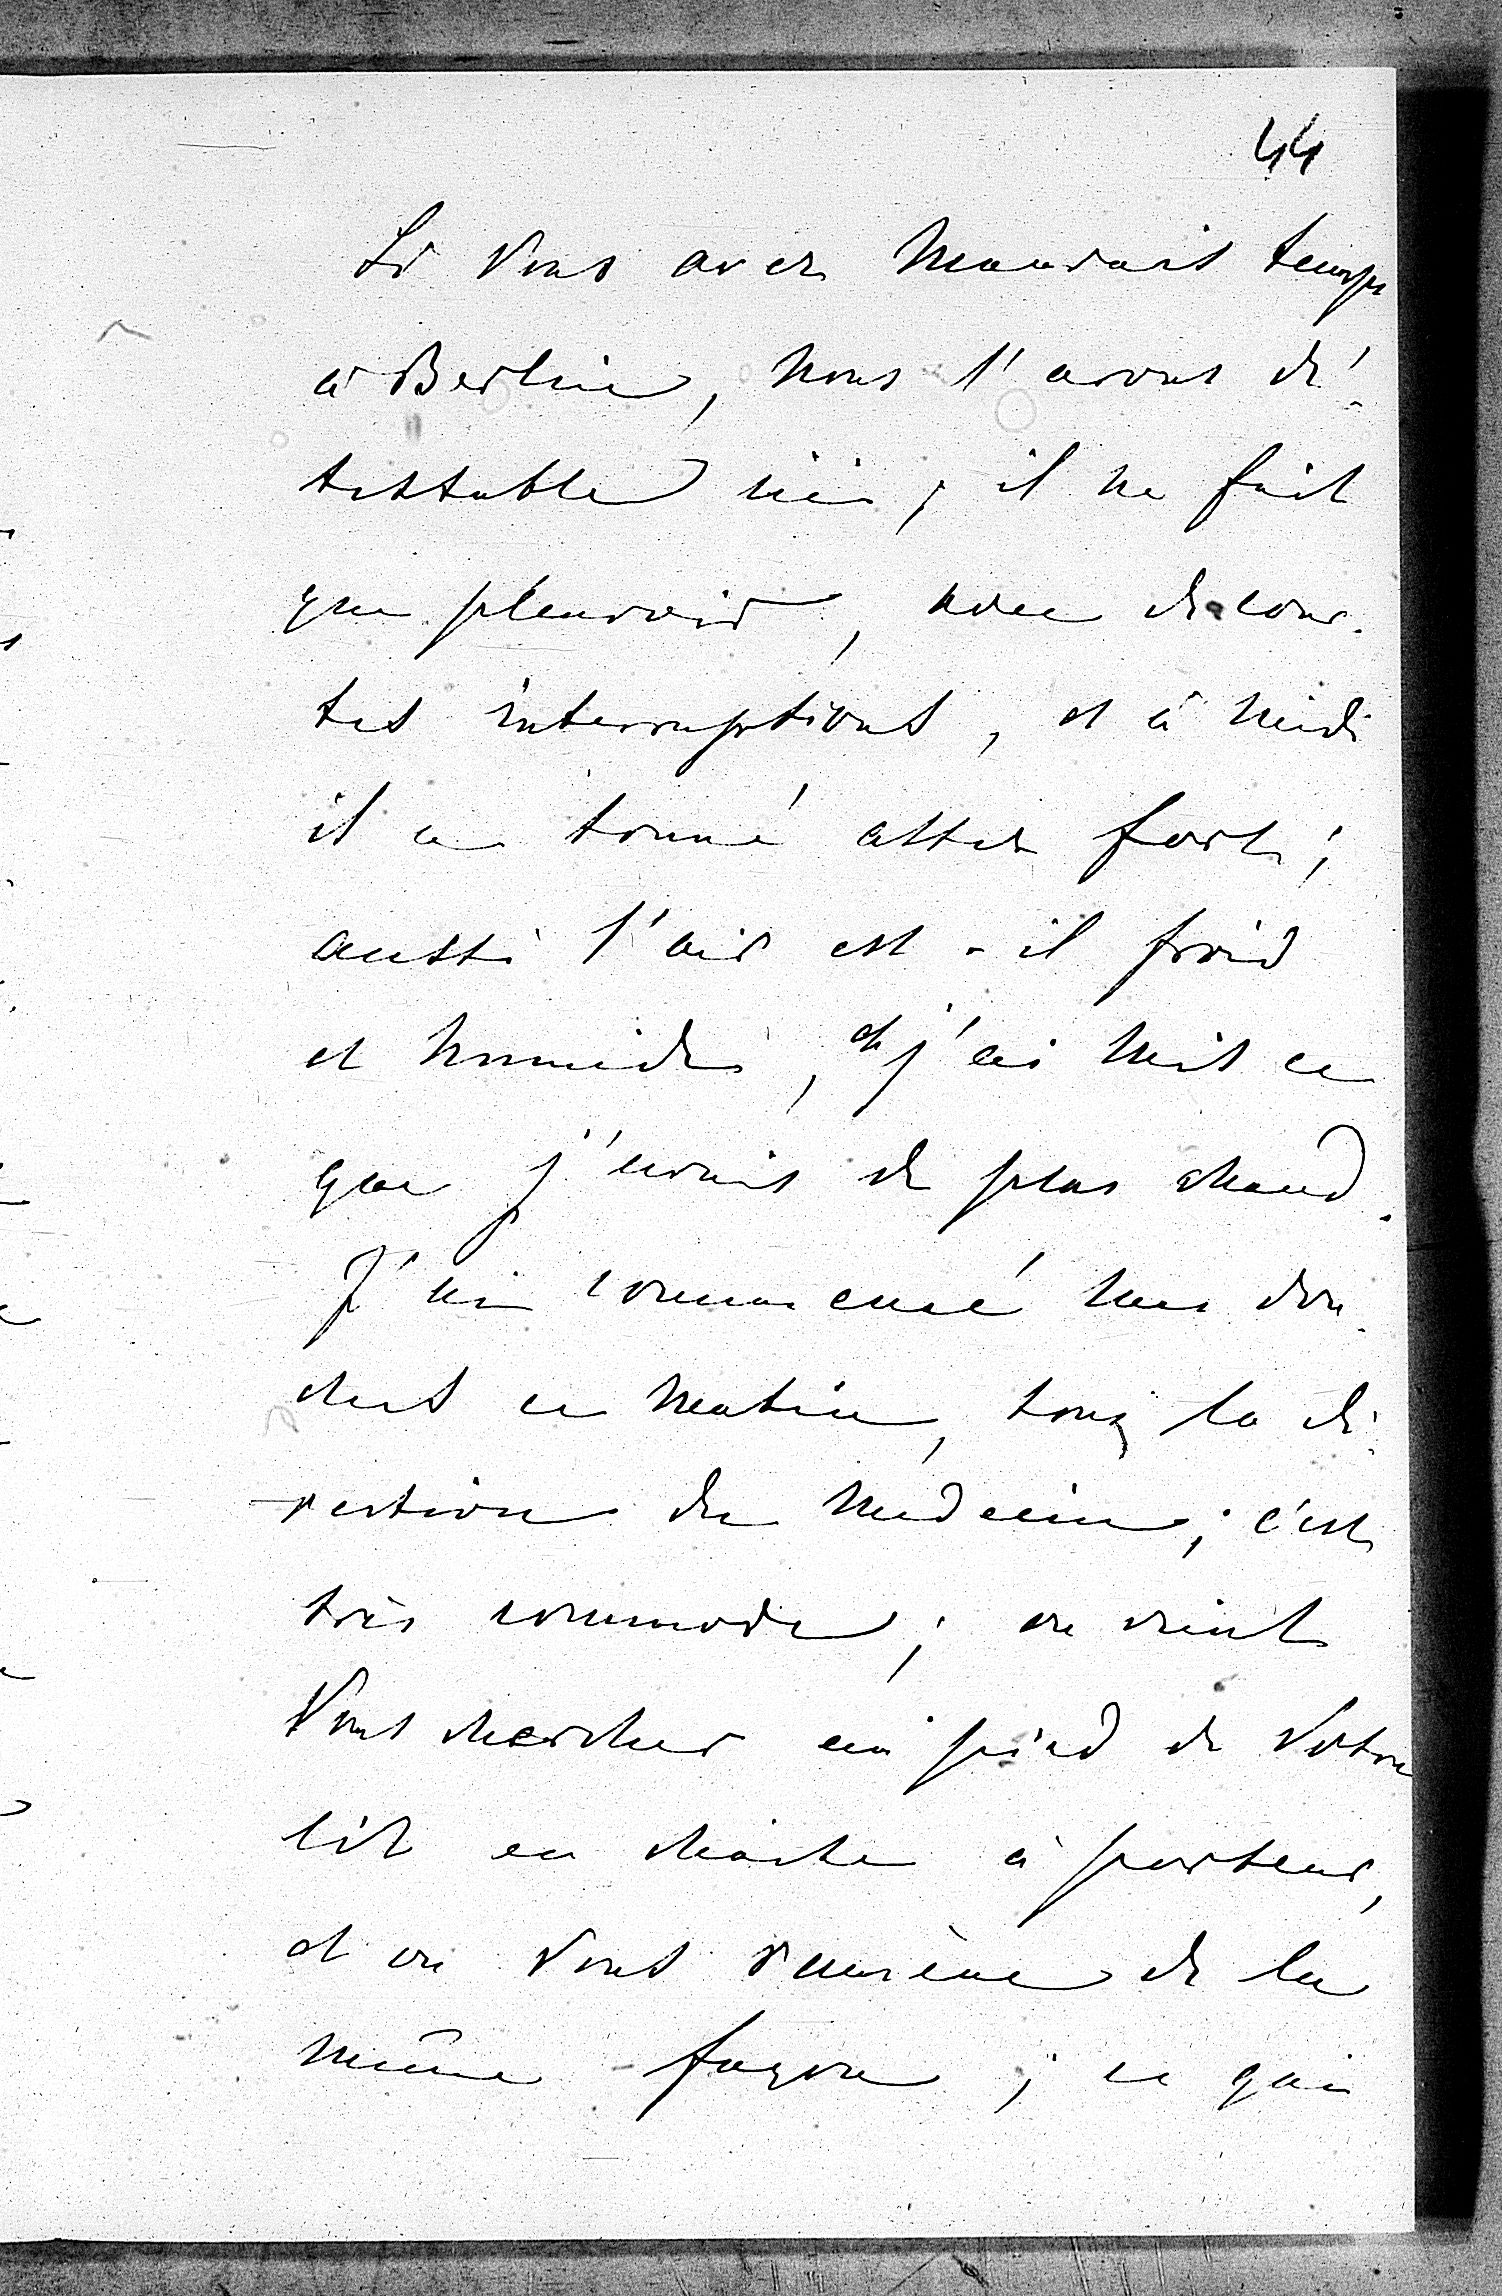 44
Si Vous avez mauvais temps
à Berlin, nous l'avons dé-
testable ici; il ne fait
que pleuvoir, avec de cour-
tes interruptions, et à midi
il a tonné assez fort;
aussi l'air est-il froid
et humide, et j'ai mis ce
que j'avais de plus chaud.
J'ai commencé mes dou-
ches ce matin, sous la di-
rection du médecin; c'est
très commode; on vient
Vous chercher au pied de Votre
lit en chaise à porteur,
et on Vous ramène de la
même façon; ce qui